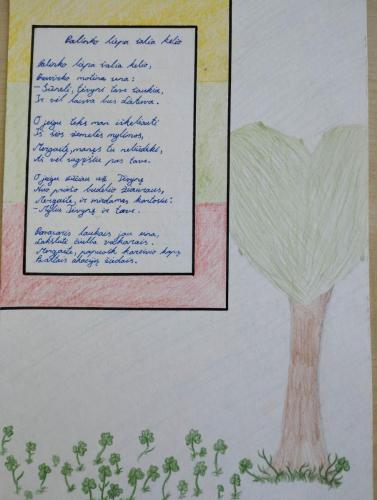 Palinko liepa šalia kelio
Palinko liepa šalia kelio,
Pavirto motina sena:
- Sūneli, tėvynė tave šaukia,
Ir vėl laisva bus Lietuva.
O jeigu teks man iškeliauti
Iš šios žemelės mylimos,
Mergaite, manęs tu neliūdėki,
Aš vėl sugrįšiu pas tave.
O jeigu žūčiau už Tėvynę
Nuo priešo budelio žiauraus,
Mergaite, ir mirdamas kartosiu:
- Myliu Tėvynę ir tave.
Pavasaris laukais jau eina,
Lakštutė čiulba vakarais.
Mergaite, papuošk kareivio kapą
Baltais akacijų žiedais.